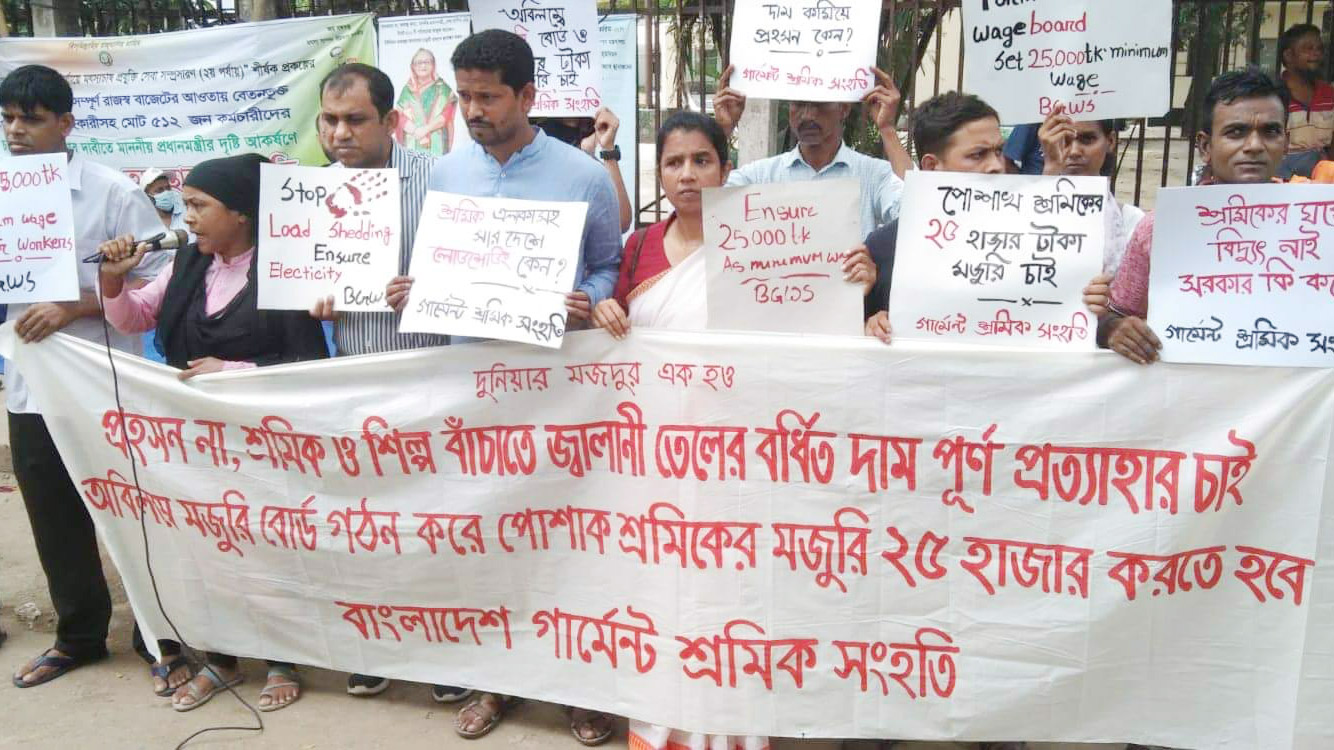 সম্প্রসারণ (২য় পর্যায়)" শীর্ষক প্রকল্পের
সম্পূর্ণ রাজস্ব বাজেটের আওতায় বেতনভুক্ত
মোট ৫১২ জন কর্মচারীদের
দাবীতে মাননীয় প্রধানমন্ত্রীর দৃষ্টি আকর্ষণে
অবিলম্বে
বোর্ড ও
টাকা
চাই
শ্রমিক সংহতি
দাম কমিয়ে
প্রহসন কেন?
গার্মেন্ট শ্রমিক সংহতি
wage board
Set 25000tk minimum
wage
BGWS
5,000tk
wage
workers
GWS
Stop
Load Shedding
Ensure
Electicity
BGW
শ্রমিক এলাকাসহ
সারাদেশে
লোডশেডিং কেন?
গার্মেন্ট শ্রমিক সংহতি
Ensure
25000tk
As minimum wa
BGWS
পোশাখ শ্রমিকের
২৫ হাজার টাকা
মজুরি চাই
গার্মেন্ট শ্রমিক সংহতি
শ্রমিকের ঘরে
বিদ্যুৎ নাই
সরকার কি ক
গার্মেন্ট শ্রমিক সং
দুনিয়ার মজদুর এক হও
প্রহসন না, শ্রমিক ও শিল্প বাঁচাতে জ্বালানী তেলের বর্ধিত দাম পূর্ণ প্রত্যাহার চাই
অবিলম্বে মজুরি বোর্ড গঠন করে পোশাক শ্রমিকের মজুরি ২৫ হাজার করতে হবে
বাংলাদেশ গার্মেন্ট শ্রমিক সংহতি